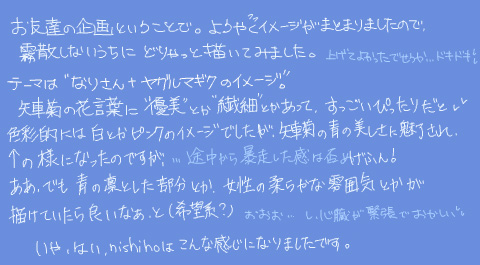 お友達の企画ということで。ようやくイメージがまとまりましたので、
霧散しないうちに どりゃっと描いてみました。上げてよかったでせうか…ドキドキ!
テーマは"なりさん+ヤグルマギクのイメージ"
矢車菊の花言葉に"優美"とか"繊細"とかあって、すっごいぴったりだと
色彩的には白とかピンクのイメージでしたが、矢車菊の青の美しさに魅了され、
↑の様になったのですが、…途中から暴走した感は否めげふん!
ああ、でも 青の凛とした部分とか、女性の柔らかな雰囲気とかが
描けていたら良いなぁ、と(希望系?) おおお… し、心臓が緊張でおかしい。
いやいない、nishinoはこんな感じになりましたです。